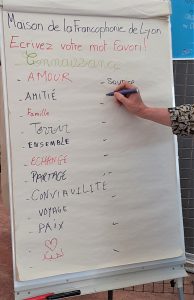 Maison de la Francophonie de Lyon
Ecrivez votre mot favori!
Connaissance
- AMOUR
- AMITIÉ
- Famille
- Terroir
- ENSEMBLE
- ÉCHANGE
- PARTAGE
- CONVIVIALITÉ
- VOYAGE
- PAIX
- Sourire